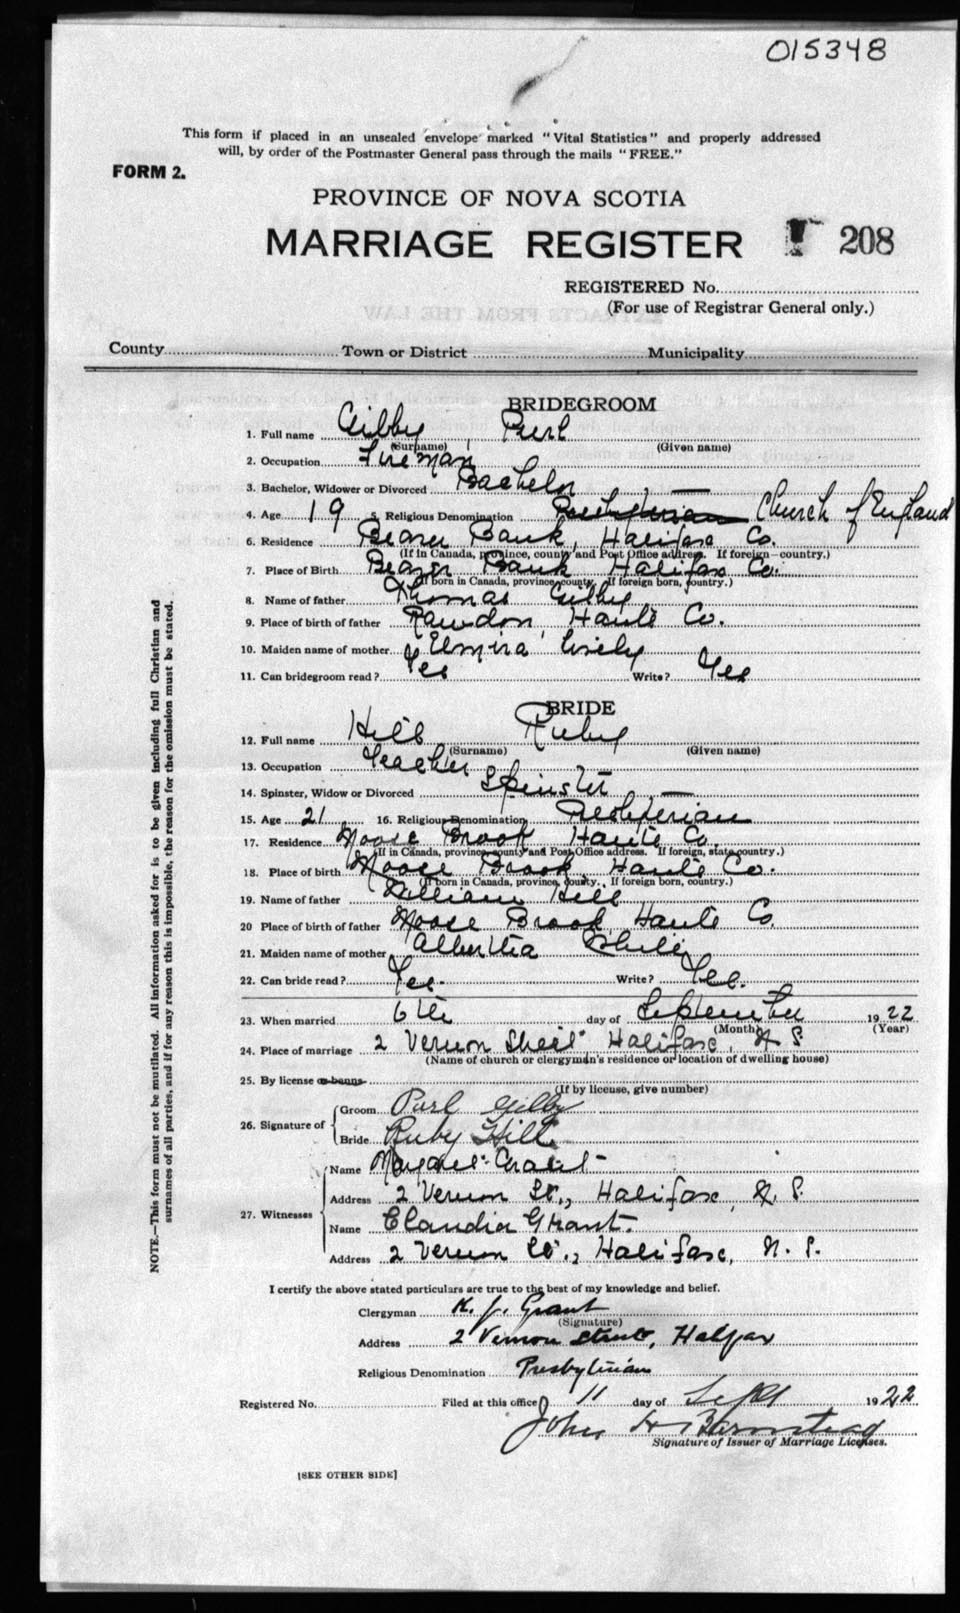 015348
This form if placed in an unsealed envelope marked "Vital Statistics" and properly addressed
will, by order of the Postmaster General pass through the mails "FREE."
FORM 2.
PROVINCE OF NOVA SCOTIA
MARRIAGE REGISTER 208
REGISTERED No.
(For use of Registrar General only.)
County Town or District Municipality
BRIDEGROOM
1. Full name Gilby, Purl
(Surname) (Given name)
2. Occupation Fireman
3. Bachelor, Widower or Divorced Bachelor
4. Age 19 5. Religious Denomination Presbyterian Church of England
6. Residence Beaver Bank, Halifax Co.
(If in Canada, province, county and Post Office address. If foreign—country.)
7. Place of Birth Beaver Bank Halifax Co.
(If born in Canada, province, county. If foreign born, country.)
8. Name of father Thomas Gilby
9. Place of birth of father Rawdon, Hants Co.
10. Maiden name of mother Elmira Lively
11. Can bridegroom read? Yes Write? Yes
BRIDE
12. Full name Hill Ruby
(Surname) (Given name)
13. Occupation Teacher
14. Spinster, Widow or Divorced Spinster
15. Age 21 16. Religious Denomination Presbyterian
17. Residence Moose Brook Hants Co.
(If in Canada, province, county and Post Office address. If foreign, state country.)
18. Place of birth Moose Brook Hants Co.
(If born in Canada, province, county. If foreign born, country.)
19. Name of father William Hill
20 Place of birth of father Moose Brook Hants Co.
21. Maiden name of mother Albertha
22. Can bride read? Yes. Write? Yes.
23. When married 6th day of September 1922
(Month) (Year)
24. Place of marriage 2 Vernon Street Halifax, N. S.
(Name of church or clergyman's residence or location of dwelling house)
25. By license or banns
(If by license, give number)
26. Signature of Groom Purl Gilby
Bride Ruby Hill
27. Witnesses Name Margaret Grant
Address 2 Vernon St., Halifax, N. S.
Name Claudia Grant.
Address 2 Vernon St., Halifax, N. S.
I certify the above stated particulars are true to the best of my knowledge and belief.
Clergyman K. J. Grant
(Signature)
Address 2 Vernon Street, Halifax
Religious Denomination Presbyterian
Registered No. Filed at this office 11 day of Sept 1922
John H Barnstead
Signature of Issuer of Marriage Licenses.
[SEE OTHER SIDE]
NOTE.—This form must not be mutilated. All information asked for is to be given including full Christian and
surnames of all parties, and if for any reason this is impossible, the reason for the omission must be stated.